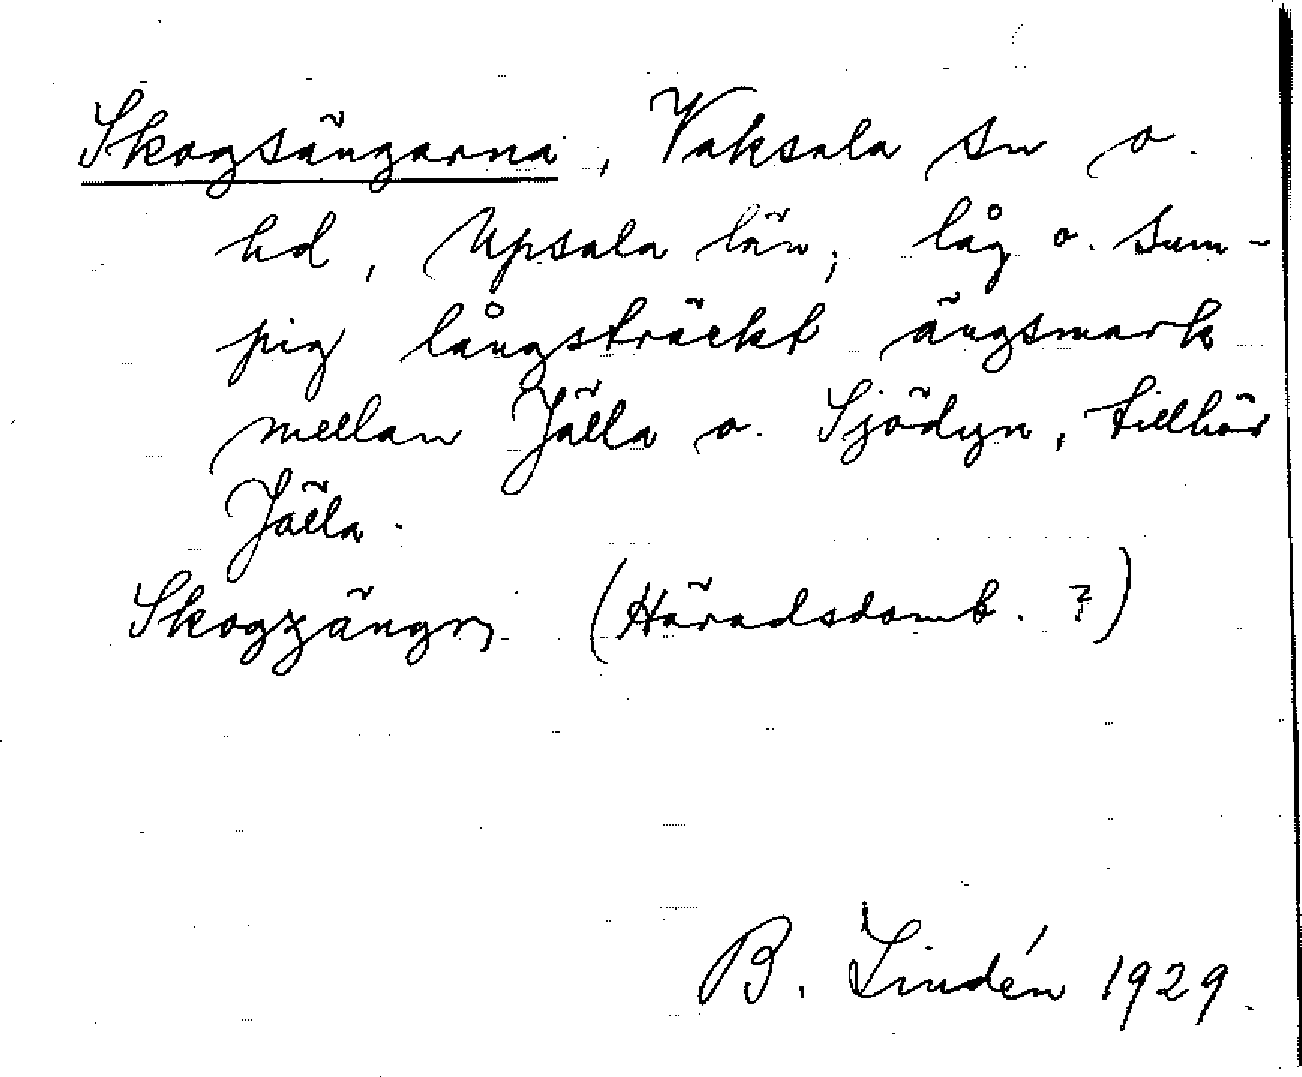 Skogsängarna, Vaksala sn o.
hd, Upsala län; låg o. sum-
pig långsträckt ängsmark
mellan Jälla o. Sjödyn, tillhör
Jälla.
Skogzängr (Häradsdomb. ?)
B. Lindén 1929.